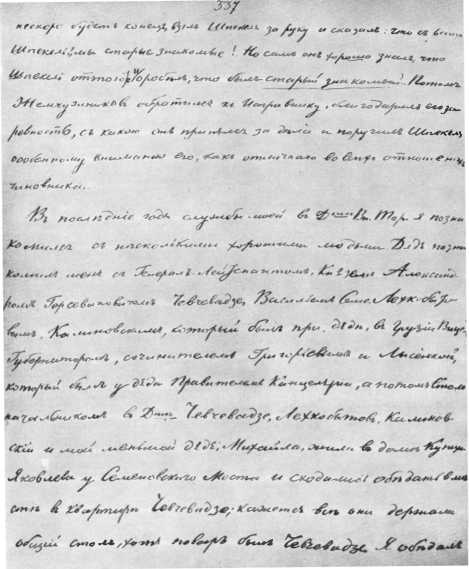 337
нескоро будетъ конецъ, взялъ Шпекел за руку и сказалъ: что съ
Шпекел мы старые знакомые! Но самъ онъ хорошо зналъ, что
Шпекел оттого и оробѣлъ, что былъ старый знакомый. Потомъ
Жемчужниковъ обратился къ благодарилъ его за
ревность, съ какою онъ принялся за дѣла и поручилъ
особенному вниманію его, какъ отличнаго во всѣхъ отношеніяхъ
чиновника.
Въ послѣдніе годы службы моей въ Д Тор. я позна
комился съ нѣсколькими хорошими людьми. Дѣдъ позна
комилъ меня съ Генералъ Лейтенантомъ, Княземъ Александ
ромъ Чевчевадзе, Василіемъ
вымъ, Калиновскимъ, который былъ при дѣдѣ, въ Грузіи Вице
Губернаторомъ, сочинителемъ Григорьевымъ и
который былъ у дѣда Правителемъ Канцеляріи, а потомъ Столо
начальникомъ в Д Чевчевадзе, Калинов
скій и мой меньшой дѣдъ, Михайла, жили в домѣ Купца
Яковлева у Семеновскаго Моста и сходились обѣдать вмѣ
стѣ в квартиру Чевчевадзе; кажется всѣ они держали
общій столъ, хотя поваръ былъ Чевчевадзе. Я обѣдалъ